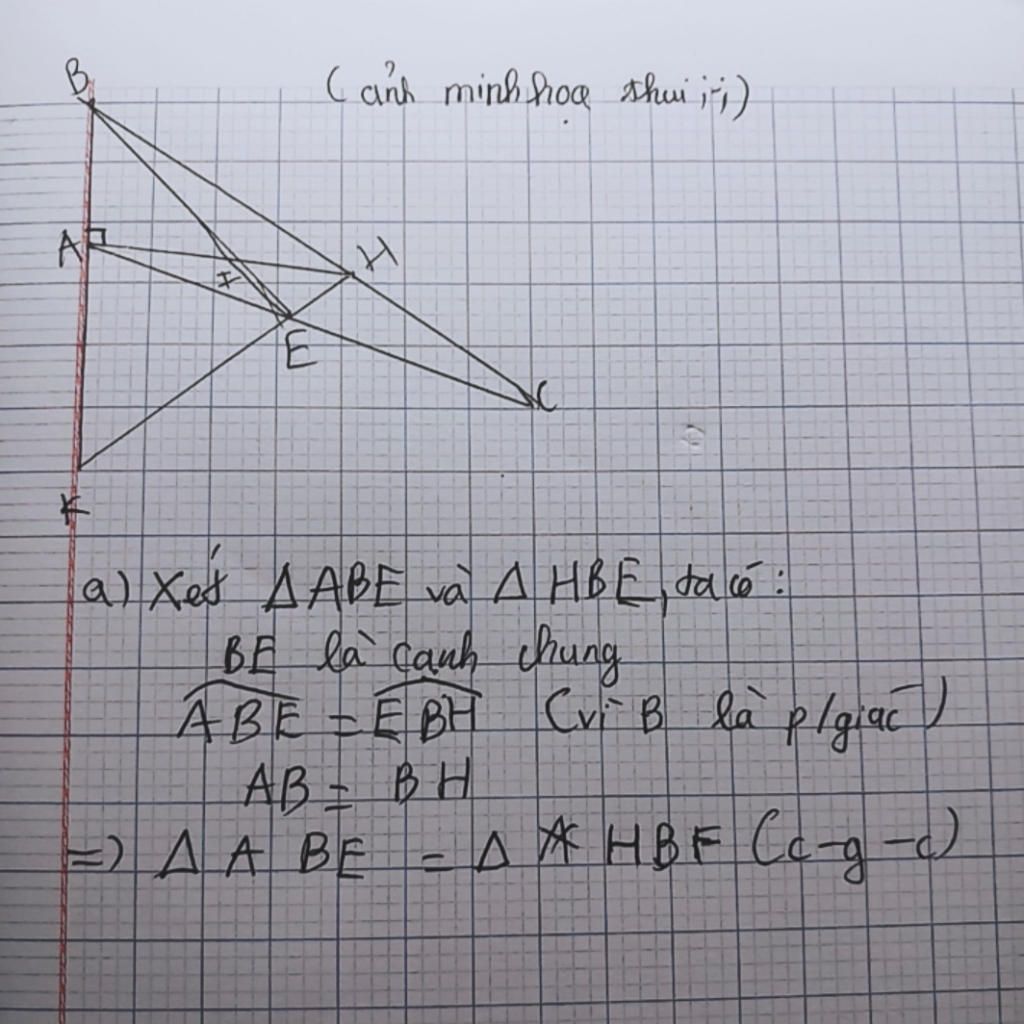 B
(ảnh minh hoạ thui ;-;)
A
H
I
E
C
K
a) Xét Δ ABE và Δ HBE, ta có:
BE là cạnh chung
ABE = EBH (vì B là p/giác)
AB = BH
=) Δ A BE = Δ HBE (c-g-c)